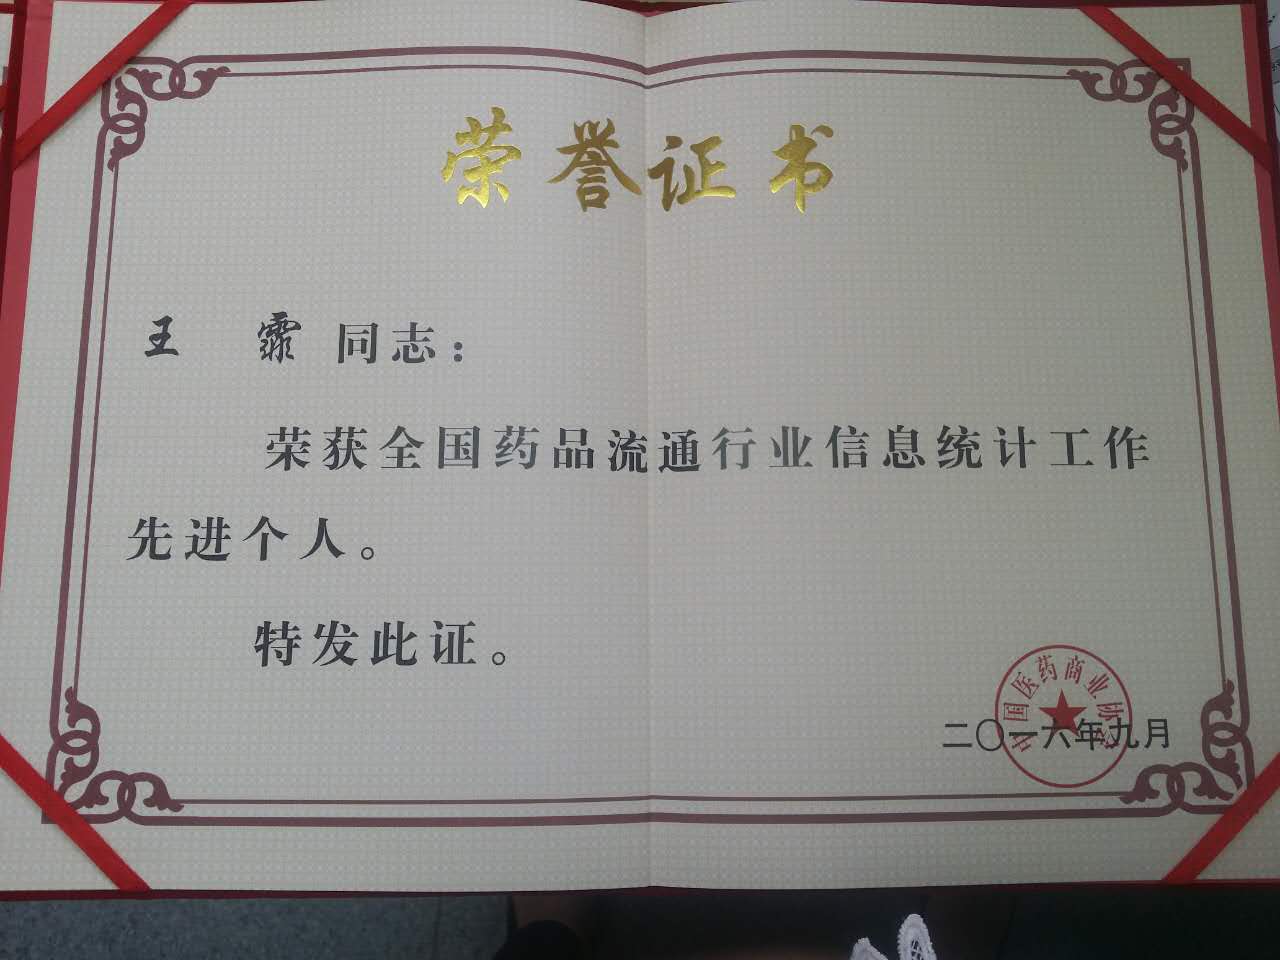 荣誉证书
王 霏 同志：
荣获全国药品流通行业信息统计工作
先进个人。
特发此证。
中国医药商业协会
二〇一六年九月